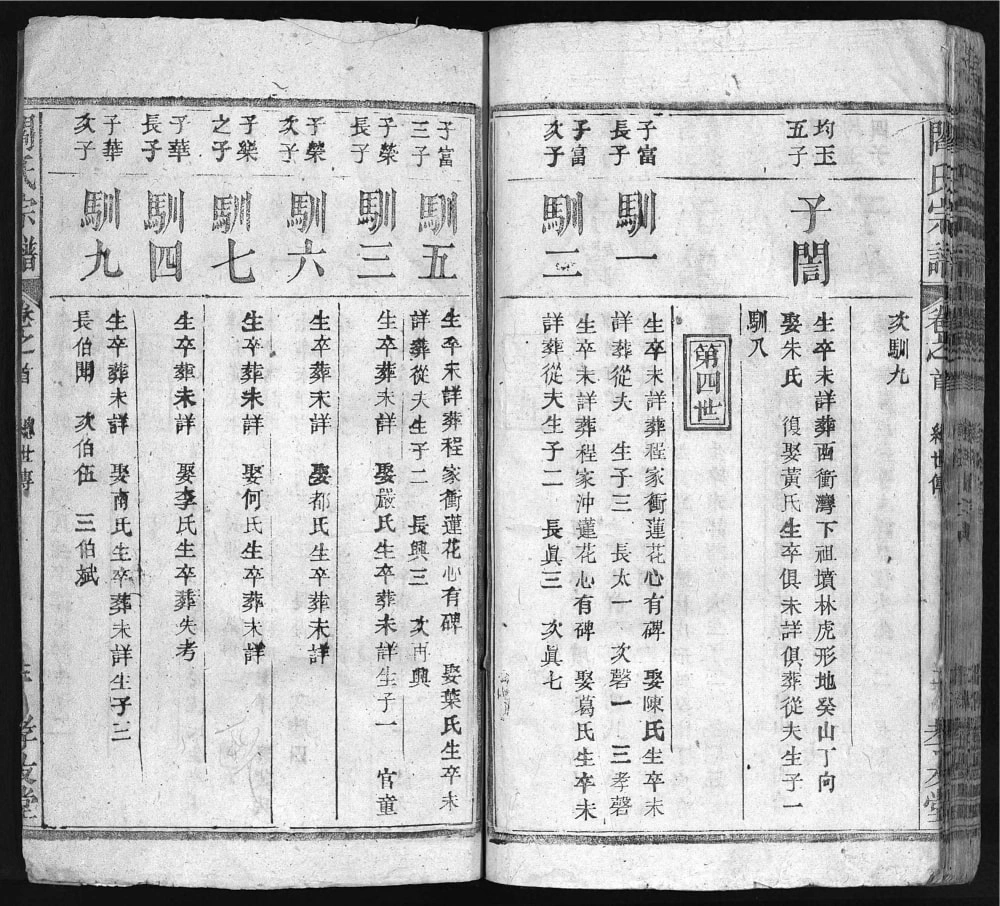 次馴九
均玉
五子
子誾
生卒未詳葬西衝灣下祖墳林虎形地癸山丁向
娶朱氏 復娶黃氏生卒俱未詳俱葬從夫生子一
馴八
第四世
子富
長子
馴一
生卒未詳葬程家衝蓮花心有碑 娶陳氏生卒未
詳葬從夫 生子三 長太一 次磬一 三孝磬
子富
次子
馴二
生卒未詳葬程家沖蓮花心有碑 娶葛氏生卒未
詳葬從夫生子二 長眞三 次眞七
子富
三子
馴五
生卒未詳葬程家衝蓮花心有碑 娶葉氏生卒未
詳葬從夫生子二 長興三 次再興
子榮
長子
馴三
生卒葬未詳 娶嚴氏生卒葬未詳生子一 官童
子榮
次子
馴六
生卒葬未詳 娶都氏生卒葬未詳
子樂
之子
馴七
生卒葬未詳 娶何氏生卒葬未詳
子華
長子
馴四
生卒葬未詳 娶李氏生卒葬失考
子華
次子
馴九
生卒葬未詳 娶南氏生卒葬未詳生子三
長伯開 次伯伍 三伯斌
氏宗譜 卷之首 總世傳